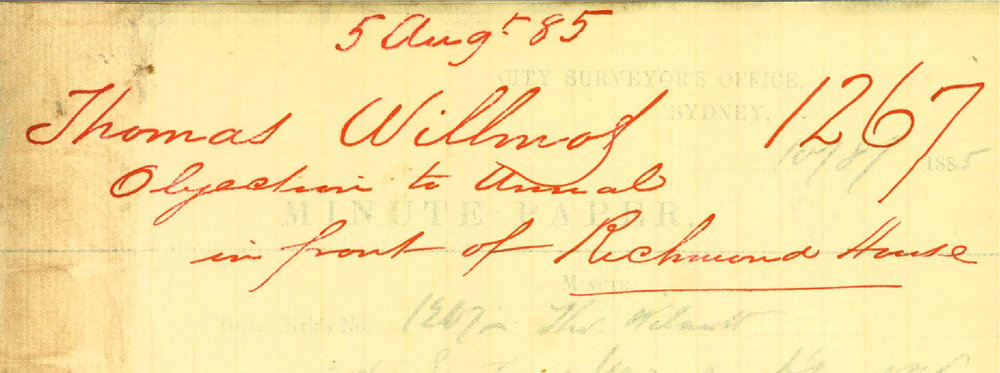 5 Augt 85
CITY SURVEYOR'S OFFICE,
SYDNEY,
Thomas Willmot 1267
10/8/ 1885
Objection to Urinal
MINUTE PAPER.
in front of Richmond House
MINUTE.
Town Clerk's No. 1267 Thos. Wilmott